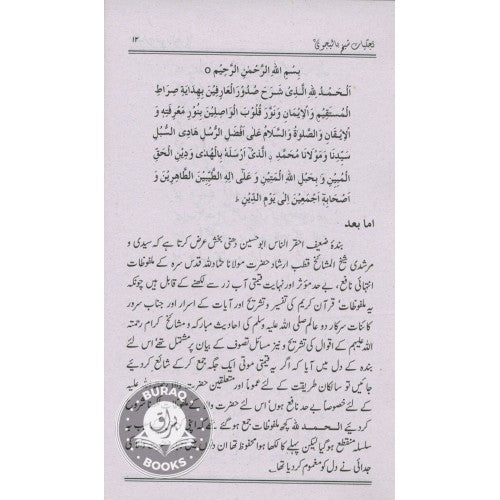 ۱۳
بِسْمِ اللّٰهِ الرَّحْمٰنِ الرَّحِیْمِ ○
اَلْحَمْدُ لِلّٰهِ الَّذِیْ شَرَحَ صُدُوْرَ الْعَارِفِیْنَ بِهِدَایَةِ صِرَاطِ
الْمُسْتَقِیْمِ وَ الْاِیْمَانِ وَ نَوَّرَ قُلُوْبَ الْوَاصِلِیْنَ بِنُوْرِ مَعْرِفَتِهٖ وَ
الْاِیْقَانِ وَ الصَّلٰوةُ وَ السَّلَامُ عَلٰی اَفْضَلِ الرُّسُلِ هَادِی السُّبُلِ
سَیِّدِنَا وَ مَوْلَانَا مُحَمَّدٍ ۨ الَّذِیْ اَرْسَلَهٗ بِالْهُدٰی وَ دِیْنِ الْحَقِّ
الْمُبِیْنِ وَ بِحَبْلِ اللّٰهِ الْمَتِیْنِ وَ عَلٰی اٰلِهِ الطَّیِّبِیْنَ الطَّاهِرِیْنَ وَ
اَصْحَابِهٖ اَجْمَعِیْنَ اِلٰی یَوْمِ الدِّیْنِ ط
اما بعد
بندۂ ضعیف احقر الناس ابو حسین دھنی بخش عرض کرتا ہے کہ سیدی و
مرشدی شیخ المشائخ قطب ارشاد حضرت مولانا حماد اللہ قدس سرہ کے ملفوظات
انتہائی نافع، بے حد مؤثر اور نہایت قیمتی آب زر سے لکھنے کے قابل ہیں چونکہ
یہ ملفوظات، قرآن کریم کی تفسیر و تشریح اور آیات کے اسرار اور جناب سرور
کائنات سرکار دو عالم صلی اللہ علیہ وسلم کی احادیث مبارکہ و مشائخ کرام رحمتہ
اللہ علیہم کے اقوال کی تشریح و نیز مسائل تصوف کے بیان پر مشتمل تھے اس لئے
بندہ کے دل میں آیا کہ اگر یہ قیمتی موتی ایک جگہ جمع کر کے شائع کر دیئے
جائیں تو سالکان طریقت کے لئے عموماً اور متعلقین حضرت
کے لئے خصوصاً بے حد نافع ہوں، اس لئے حضرت
کر دیئے الحمد للہ کچھ ملفوظات جمع ہو گئے۔ یہ
سلسلہ منقطع ہو گیا لیکن پہلے کا لکھا ہوا محفوظ تھا ان
جدائی نے دل کو مغموم کر دیا تھا۔
BURAQ
BOOKS